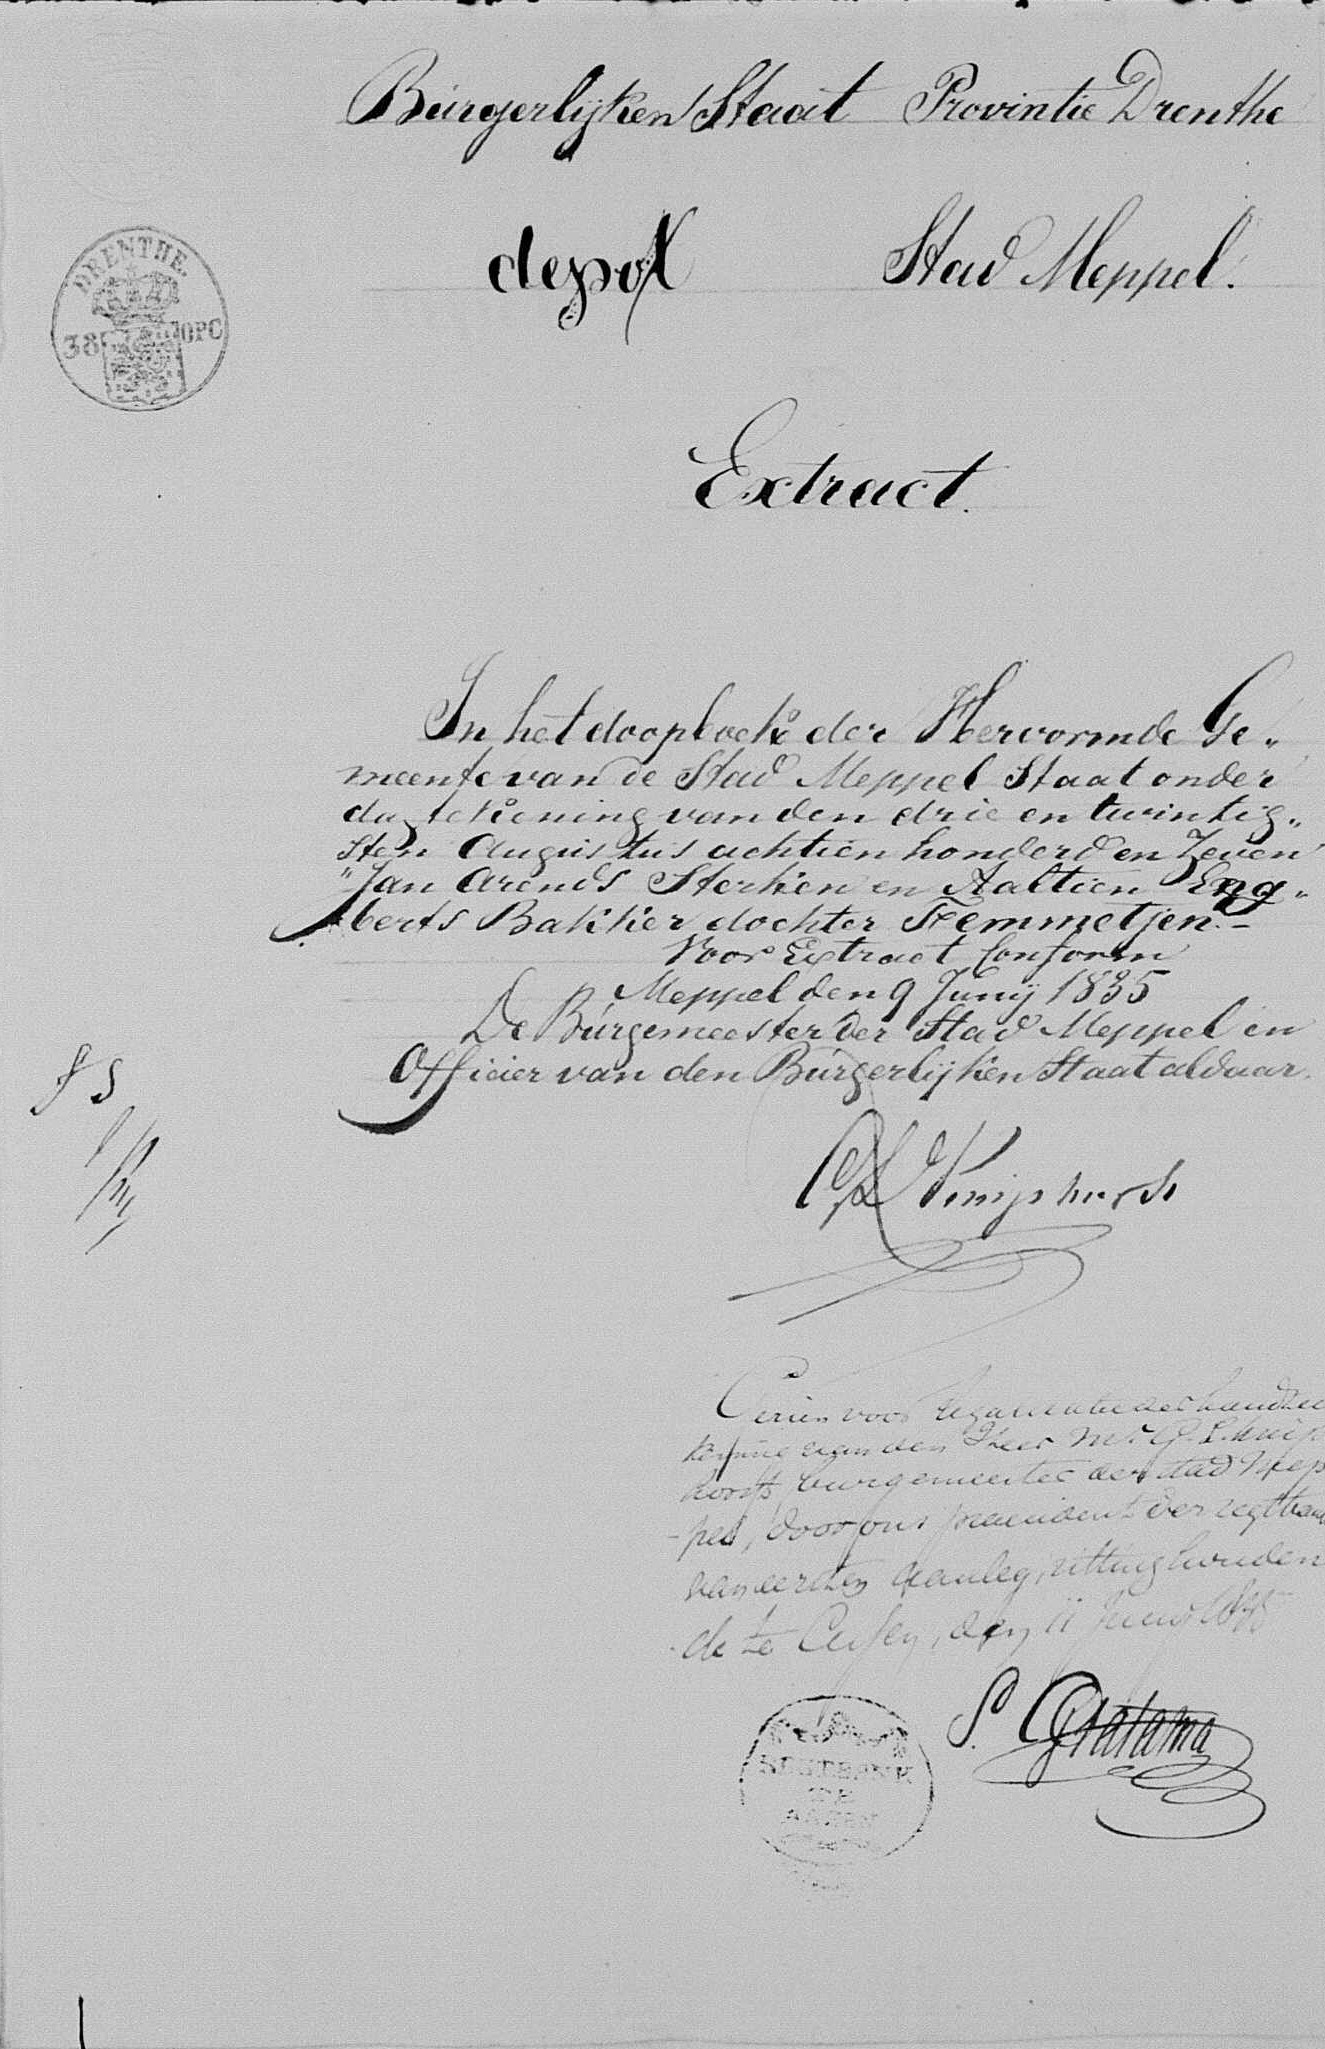 Burgerlijken Staat Provintie Drenthe
depot Stad Meppel.
DRENTHE.
38 OPC
Extract.
In het doopboek der Hervormde Ge„
meente van de Stad Meppel Staat onder
dagtekening van den drie en twintig„
sten Augustus achtien honderd en Zeven
"Jan Arends Sterken en Aaltien Eng„
berts Bakker dochter Femmetjen.-
Voor Extract Conform
Meppel den 9 Junij 1835
De Burgemeester der Stad Meppel en
Officier van den Burgerlijken Staat aldaar.
Kniphorst
Gezien voor legalisatie der handtee
kening van den Heer Mr. G. L. Knip
horst, burgemeester der stad Mep
-pel, door ons president der regtbank
van eersten aanleg, zitting houden
de te Assen, den 11 Junij 1835
S. Gratama
REGTBANK
TE
ASSEN